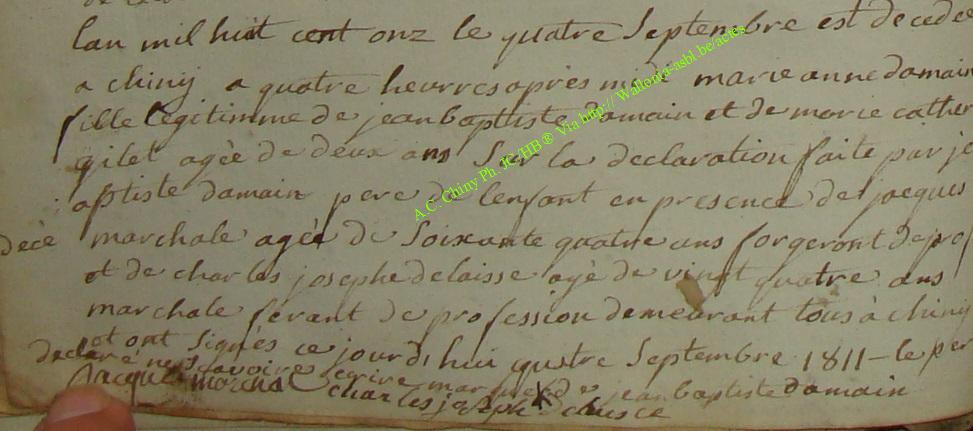 lan mil huit cent onz le quatre Septembre est decedee
a chiny a quatre heurres apres midi marie anne damain
fille legitimme de jean baptiste damain et de marie cathe
gilet agée de deux ans Sur la declaration faite par je
aptiste damain pere de lenfant en presence de jacques
decè marchale agée de Soixante quatre ans forgeront de prof
et de charles josephe delaisse agé de vingt quatre ans
marchale ferant de profession demeurant tous à chiny
et ont signés ce jourdhui quatre Septembre 1811 - le per
declaré ne savoire ecrire marque de jean baptiste damain
Jacque marchal charles joseph
A.C. Chiny Ph. JC/HB® Via http:// Wallonia-asbl.be/actes